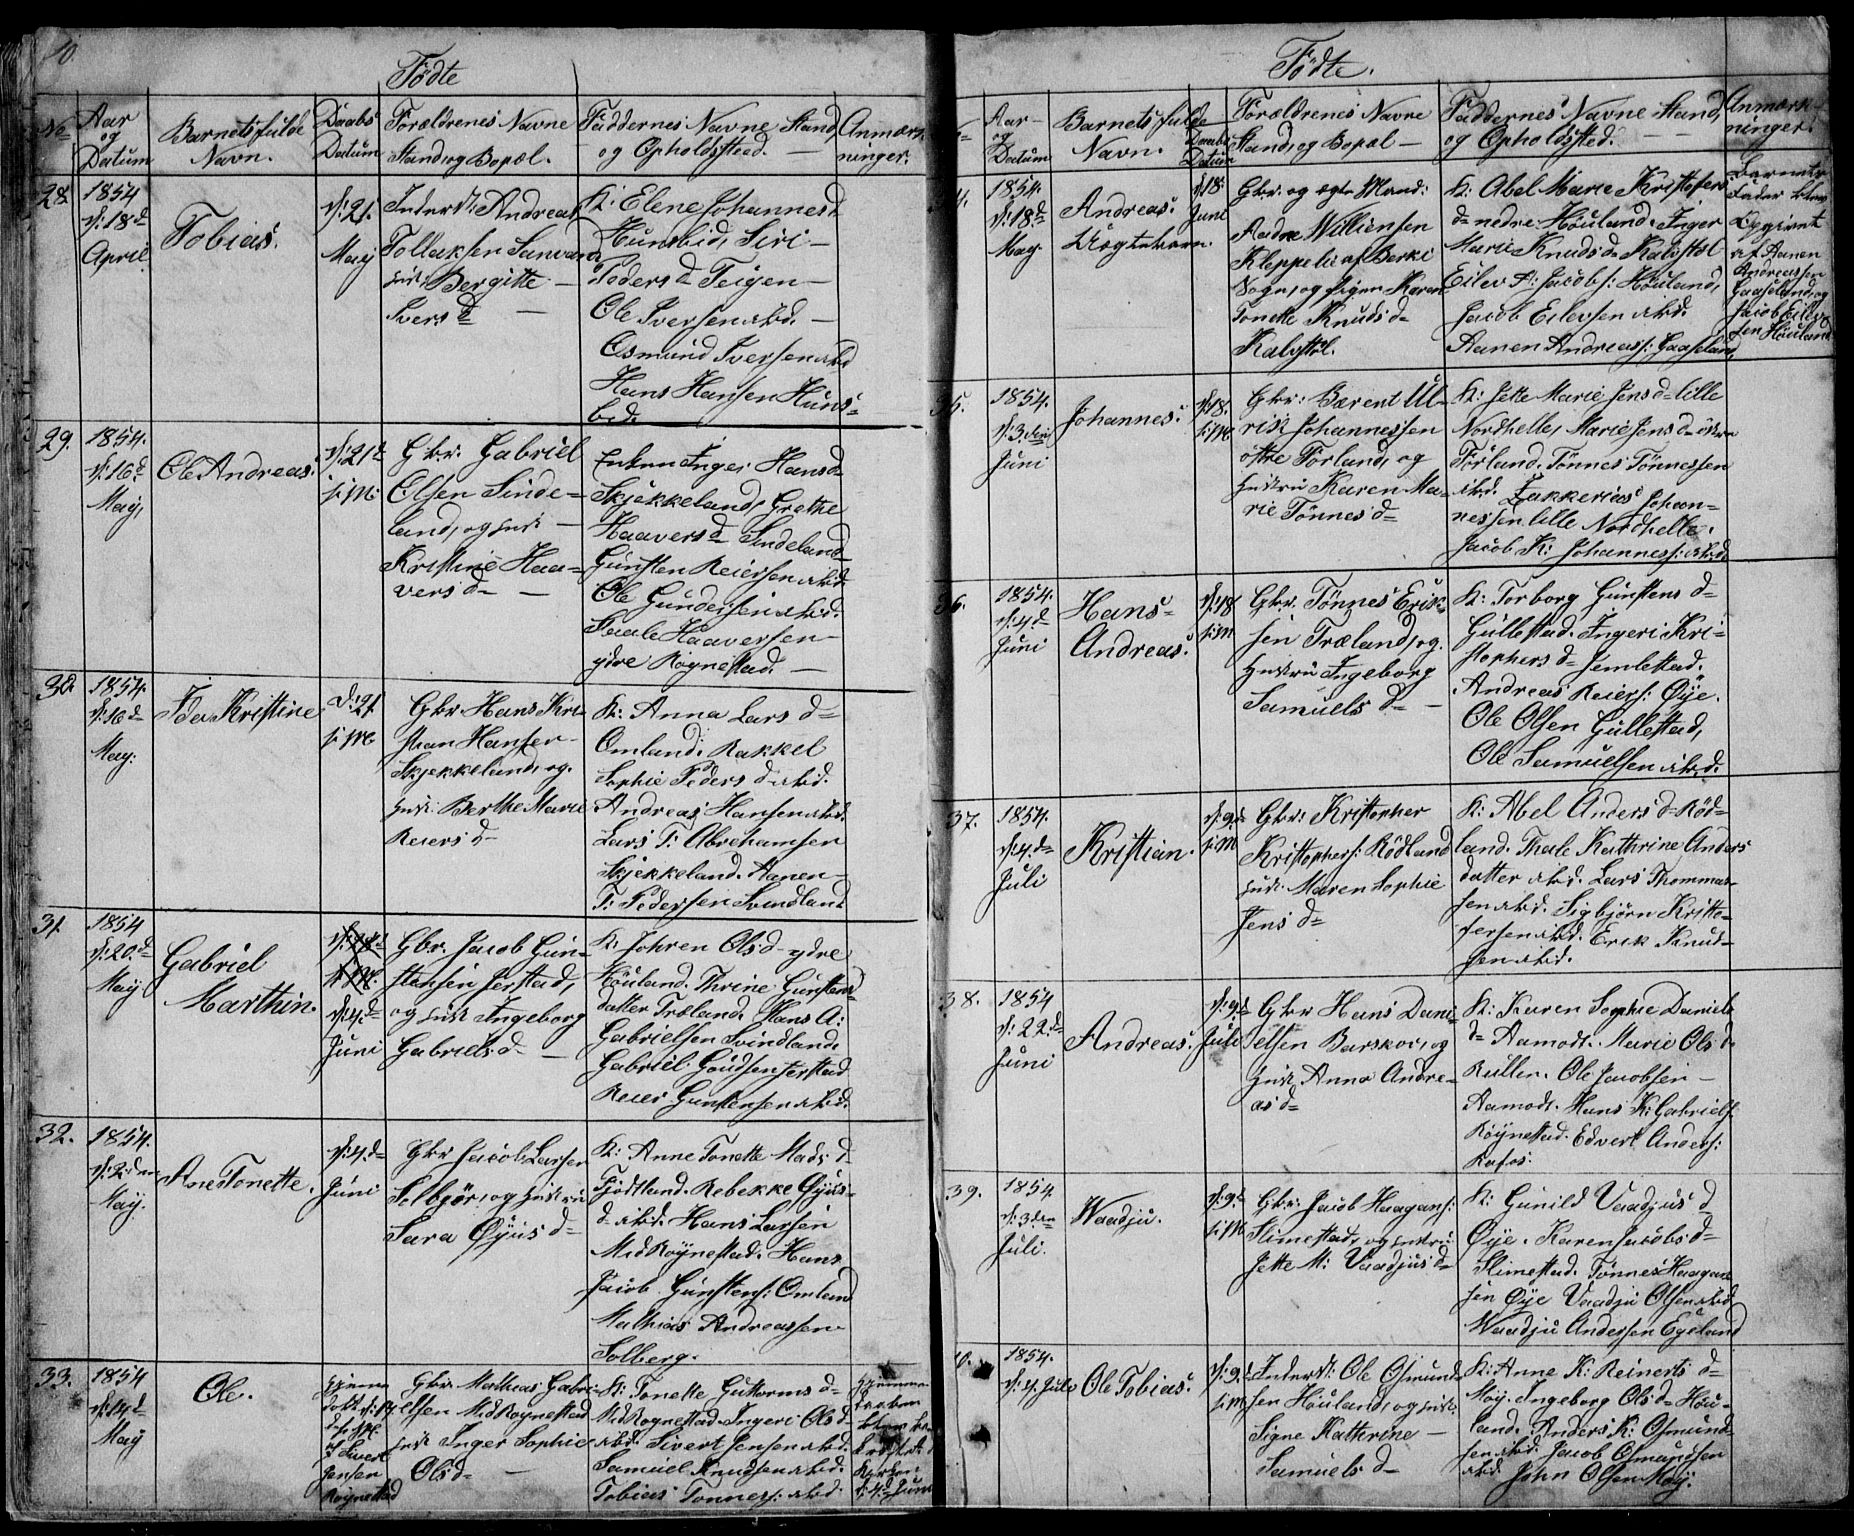 10.
Födte
No
Aar og Datum
Barnets fulde Navn.
Daabs Datum
Forældrenes Navne Stand, og Bopæl.
Faddernes Navne Stand, og Opholdssted.
Anmærkninger.
28.
1854
d: 18d
April
Tobias.
d: 21.
May
Inderst: Andreas
Tollaksen
hust: Bergitte
Ivers d
K: Elene Johannesd
Hunsbid, Siri
Peders d Teigen
Ole Iversen ibid.
Osmund Iversen ibid
Hans Hansen Huns-
bed.
29.
1854.
d: 16d
May,
Ole Andreas.
d: 21d
s: M:
Gbr. Gabriel
Olsen Sinde-
land, og hust
Kristine Haa-
vers d
Enken Inger Hansd
Skjekkeland, Grethe
Haavers d Sindeland
Gunsten Reiersen ibid.
Ole Gundersen ibid.
Saale Haaversen
ydre Röynestad.
30.
1854.
d: 16d
May.
Ida Kristine
d: 21
s: M
Gbr. Hans Kri-
stian Hansen
Skjekkeland, og
hust: Berthe Marie
Reiers d
K: Anna Lars d
Omland. Rakkel
Sophie Peders d ibid.
Andreas Hansen ibid.
Lars T: Abrahamsen
Skjekkeland. Aanen
T: Pedersen Svindland
31.
1854
d: 20d
May
Gabriel
Marthin.
d: 4d
Juni
Gbr. Jacob Gun-
stensen Jerstad,
og hust Ingeborg
Gabriels d
K: Johren Olsd ydre
Höuland. Thrine Gunstens-
datter Træland. Hans A:
Gabrielsen Svindland.
Gabriel Gaudsen Jerstad
Reier Gunstensen ibid.
32.
1854.
d: 2den
May.
Ane Tonette.
d: 4d
Juni
Gbr Jacob Larsen
Selbjör, og hustru
Sara Öyus d
K: Anne Tonette Mads d
Fjödtland. Rebekke Öyus-
d ibid. Hans Larsen
Mid Röynestad. Hans
Jacob Gunstens: Omland
Mathias Andreassen
Solberg.
33.
1854
d: 14d
May
Ole.
Hjemme
döbt d: 14
Sivert
Jensen
Röynestad
Gbr Mathias Gabri-
elsen Mid Röynestad
hust Inger Sophie
Ols d
K: Tonette Guttorms d
Mid Rognestad. Ingeri Ols d
ibid. Sivert Jensen ibid.
Samuel Knudsen ibid.
Tobias Tönness: ibid.
Hjemme
daaben
blev
Kirken
d: 4d Juni
Födte.
Aar og Datum
Barnets fulde Navn.
Daabs Datum
Forældrenes Navne Stand, og Bopæl
Faddernes Navne Stand, og Opholdssted.
Anmærkninger.
4.
1854.
d: 18d
May
Andreas.
Uægtebarn.
d: 18.
Juni
Gbr. og egte Mand:
Aadne Williensen
Kleppelie af Berki
Sogn, og pigen Karen
Tonette Knuds d
Kalvstöl.
K: Abel Marie Kristofers
d nedre Höuland. Inger
Marie Knuds d Kalvstöl
Eilev A: Jacobs: Höuland,
Jacob Eilevsen ibid.
Aanen Andreass: Gaaseland.
Barnets
Fader blev
Opgivet
af Aanen
Andreassen
Gaaseland, og
Jacob Eilev
sen Höuland
35.
1854.
d: 3die
Juni
Johannes.
d: 18.
s: M
Gbr: Bærent Ul-
rik Johannessen
östre Förland, og
hustru Karen Ma-
rie Tönnes d
K: Jette Marie Jens d lille
Nordhelle, Marie Jens d östre
Förland. Tönnes Tönnessen
ibid. Zakkerias Johan-
nessen lille Nordhelle.
Jacob K: Johanness: ibid.
36.
1854.
d: 4d
Juni
Hans
Andreas.
d: 18
s: M
Gbr. Tönnes Erik-
sen Træland, og
hustru Ingeborg
Samuels d
K: Torborg Gunstens d
Gullestad. Ingeri Kri-
stophers d Jemlestad.
Andreas Reiers: Öye.
Ole Olsen Gullestad,
Ole Samuelsen ibid.
37.
1854.
d: 4d
Juli
Kristian.
d: 9d
s: M
Gbr: Kristopher
Kristophers: Rödland
hust: Maren Sophie
Jens d
K: Abel Anders d Röd-
land. Thale Kathrine Anders
datter ibid. Lars Thommas-
sen ibid. Sigbjörn Kristo-
fersen ibid. Erik Knud-
sen ibid.
38.
1854
d: 22d
Juni
Andreas.
d: 9d
Juli
Gbr Hans Dani-
elsen Barskor, og
hust Anna Andre-
as d
K: Karen Sophie Daniels
d Aamodt. Marie Ols d
Rullen. Ole Jacobsen
Aamodt. Hans K: Gabriels:
Röynestad. Edvert Anders:
Rafos.
39.
1854.
d: 3den
Juli.
Waadju.
d: 9d
s: M
Gbr: Jacob Haagens:
Slimestad, og hustru
Jette M: Vaadjus d
K: Gunild Vaadjus d
Öye. Karen Jacobs d
Slimestad. Tönnes Haagen-
sen Öye Vaadju Olsen ibid
Waadju Andersen Egeland
40.
1854.
d: 4 Juli
Ole Tobias.
d: 9d
s: M
Inderst: Ole Osmund-
sen Höuland, og hust:
Signe Kathrine
Samuels d
K: Anne K: Reinerts d
Moy. Ingeborg Ols d Höu-
land. Anders K: Osmund-
sen ibid. Jacob Osmundsen
ibid. John Olsen Moij.